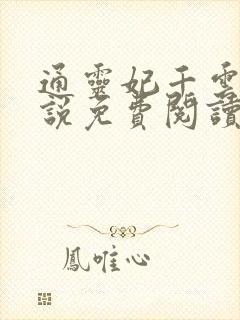 通靈妃千雲
說免費閱讀
鳳唯心